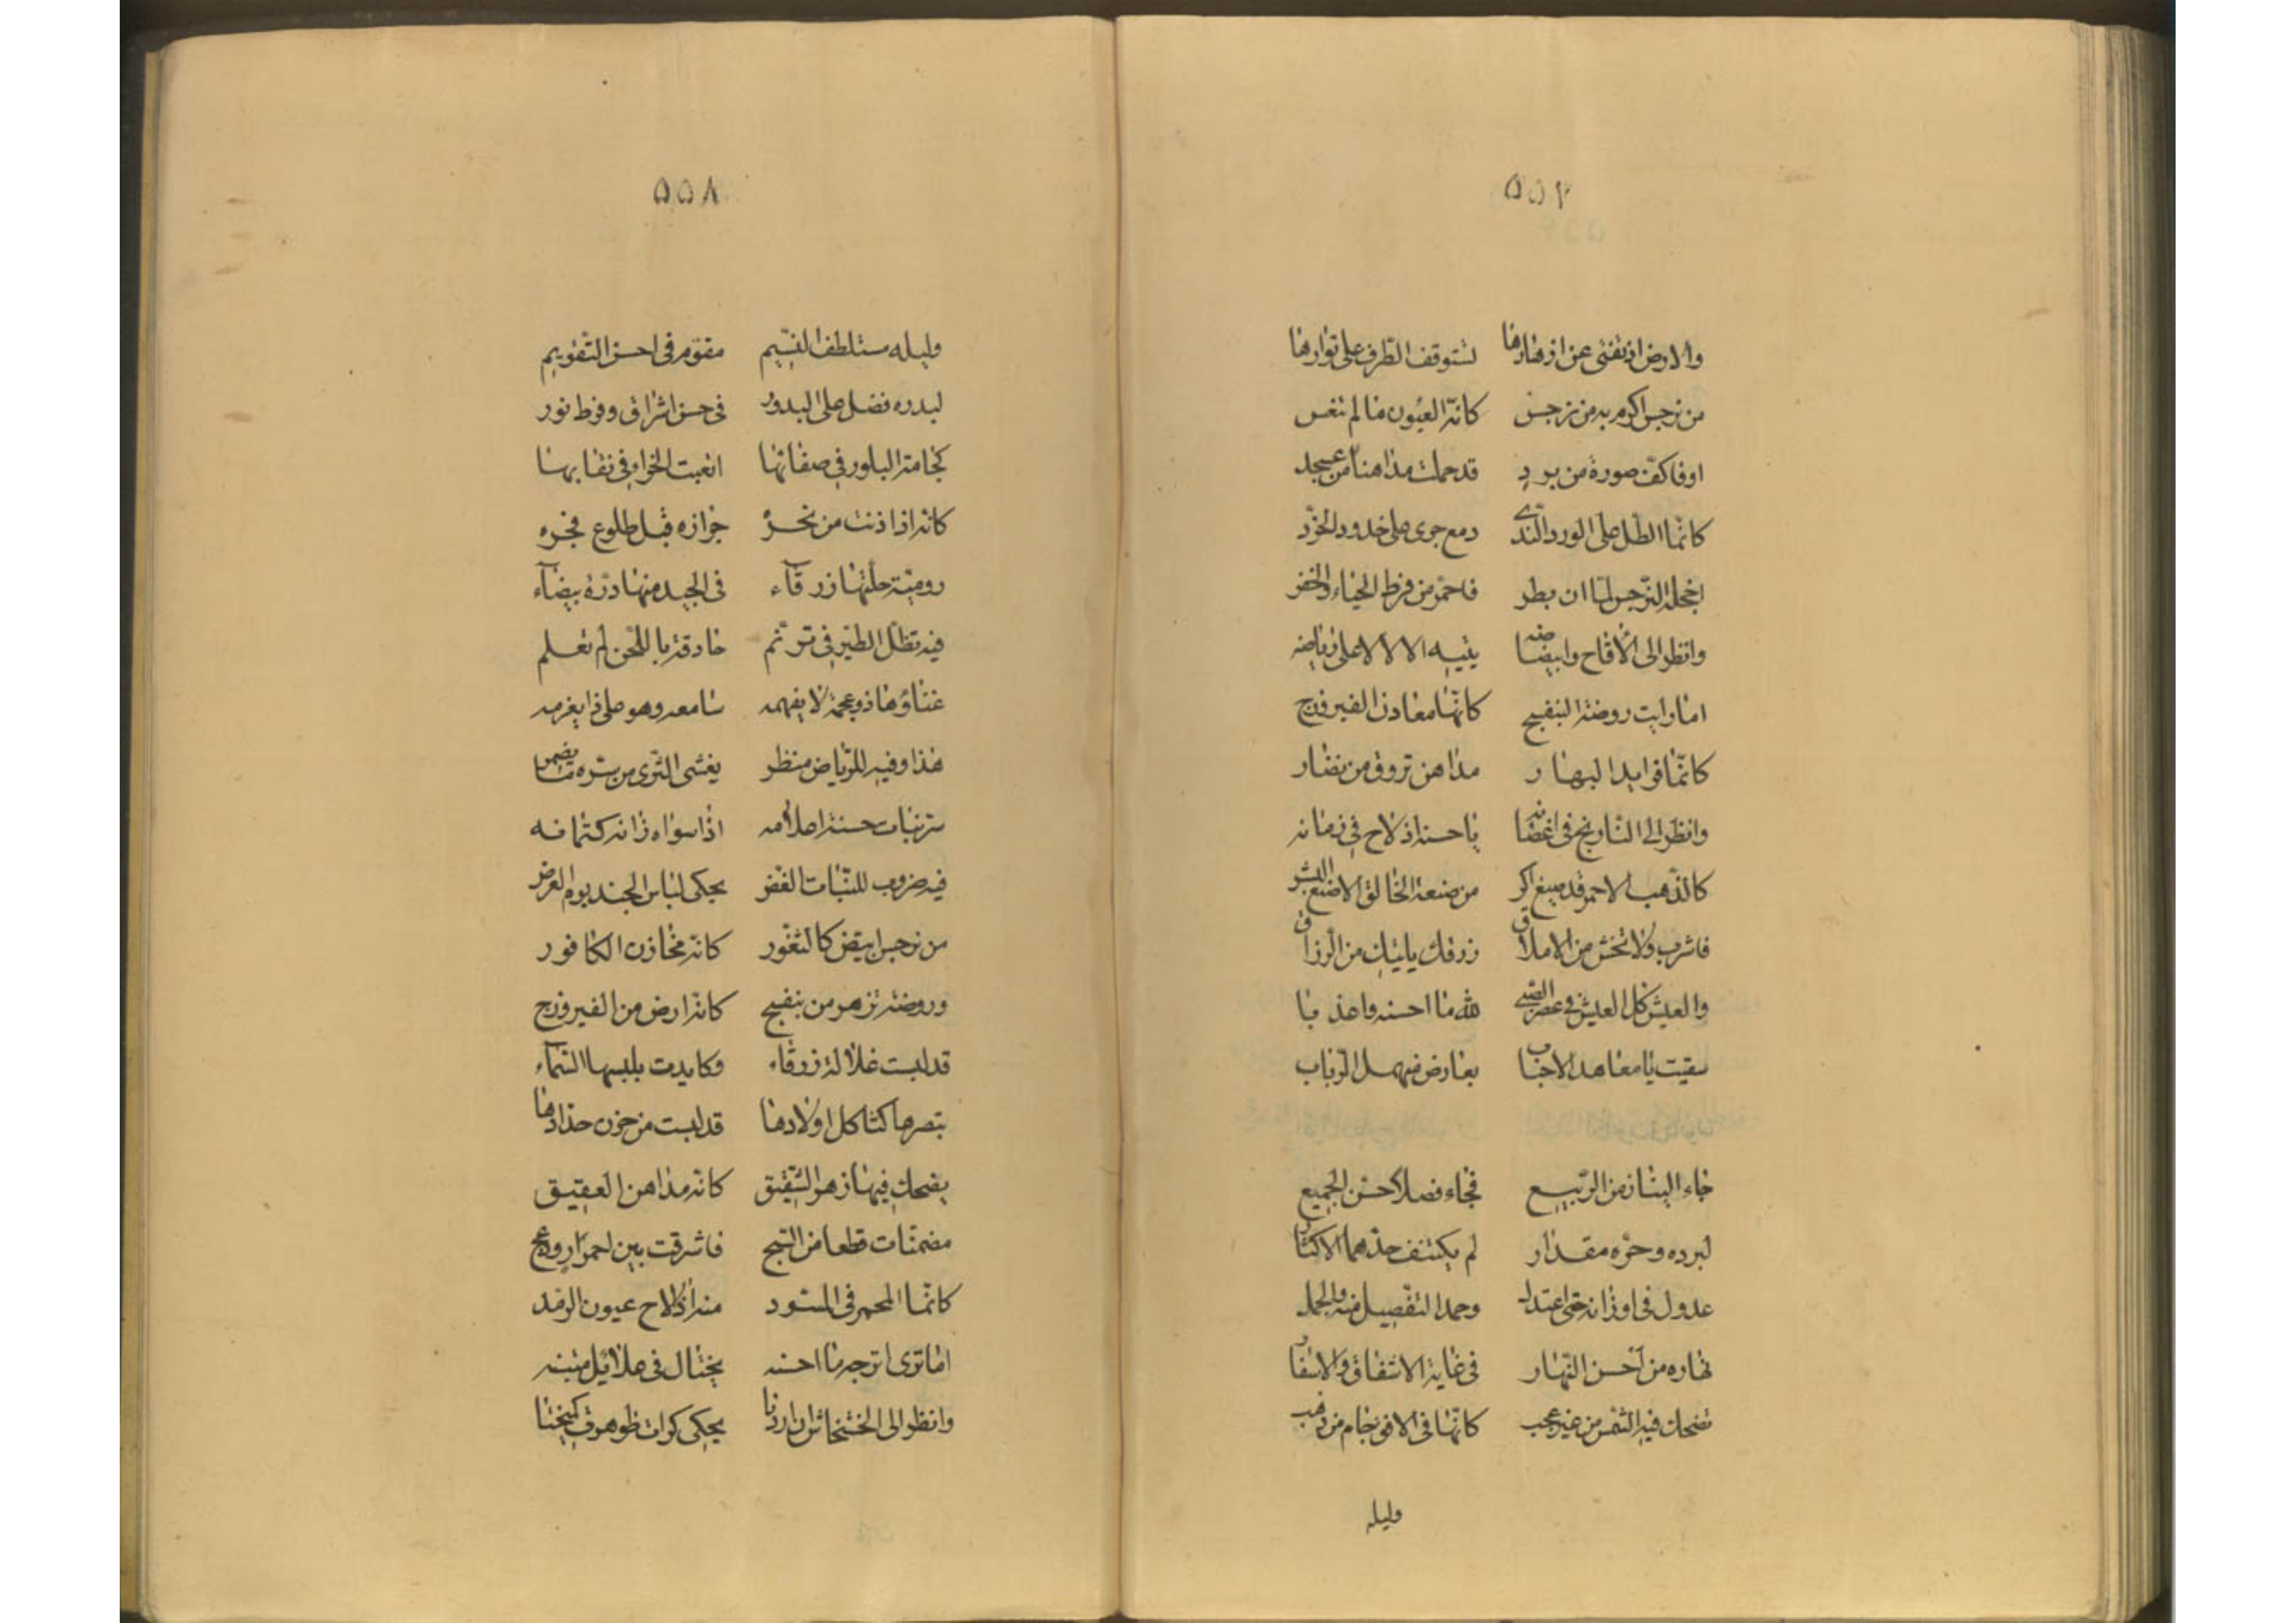 ٥٥٧
والارض اذ تفتى عن ازهارها لتستوقف الطرف على نوارها
من نرجس اكرم به من نرجس كانه العيون ما لم تنعس
او فاكفّ صورة من برد قد حملت مداهنا من عسجد
كانما الطل على الورد الندى دمع جرى على خدود الخرد
اخجله النرجس لما ان بطر فاحمر من فرط الحياء والخفر
وانظر الى الاقاح وابيضاضه يتيه الالالا على رياضه
اما رايت روضة البنفسج كانها معادن الفيروزج
كانما فوايد البهار مداهن تروق من نضار
وانظر الى النارنج فى اغصانه يا حسنه اذ لاح فى زمانه
كالذهب الاحمر قد صيغ اكر من صنعة الخالق لا صنع البشر
فاشرب ولا تخش من الاملاق رزقك ياتيك من الرزاق
والعيش كل العيش فى عصر الصبى لله ما احسنه واعذبا
سقيت يا معاهد الاحباب بعارض منهمل الرباب
جاء البنا زمن الربيع فجاء فصلا كحسن الجميع
لبرده وحره مقدار لم يكتنف حدهما الاكثار
عدول فى اوزانه حتى اعتدل وحمد التفصيل منه والجمل
نهاره من احسن النهار فى غاية الاشفاق والاسفار
تضحك فيه الشمس من غير عجب كانها فى الافق جام من ذهب
وليله
٥٥٨
وليله مستلطف النسيم مقوم فى احسن التقويم
لبدره فضل على البدور فى حسن اشراق وفرط نور
كجامة البلور فى صفاتها
كانه اذا دنت من نحره جوازه قبل طلوع فجره
رومية حلتها زرقآء فى الجيد منها درة بيضآء
فيه تظل الطير فى ترنم حاذقة باللحن لم تعلم
غناؤها ذو عجمة لا يفهمه سامعه وهو على ذا يغرمه
هذا وفيه للرياض منظر يفشى الثرى من سره ما يضمر
سر نبات حسنه اعلامه اذا سواه زانه كتمانه
فيه ضروب للنبات الغض يحكى لباس الجند يوم العرض
من نرجس ابيض كالثغور كانه مخازن الكافور
وروضة تزهو من بنفسج كانه ارض من الفيروزج
قد لبست غلالة زرقاء وكايدت بلبسها السمآء
تبصرها كثاكل اولادها قد لبست من حزن حدادها
يضحك فيها زهر الشقيق كانه مداهن العقيق
مضمنات قطعا من السبج فاشرقت بين احمرار ودعج
كانما المحمر فى المسود منه اذا لاح عيون الرمد
اما ترى اترجه ما احسنه يختال فى غلايل مبينه
وانظر الى الخشخاش ان اردنا يحكى كرات ظوهرت كيمختا